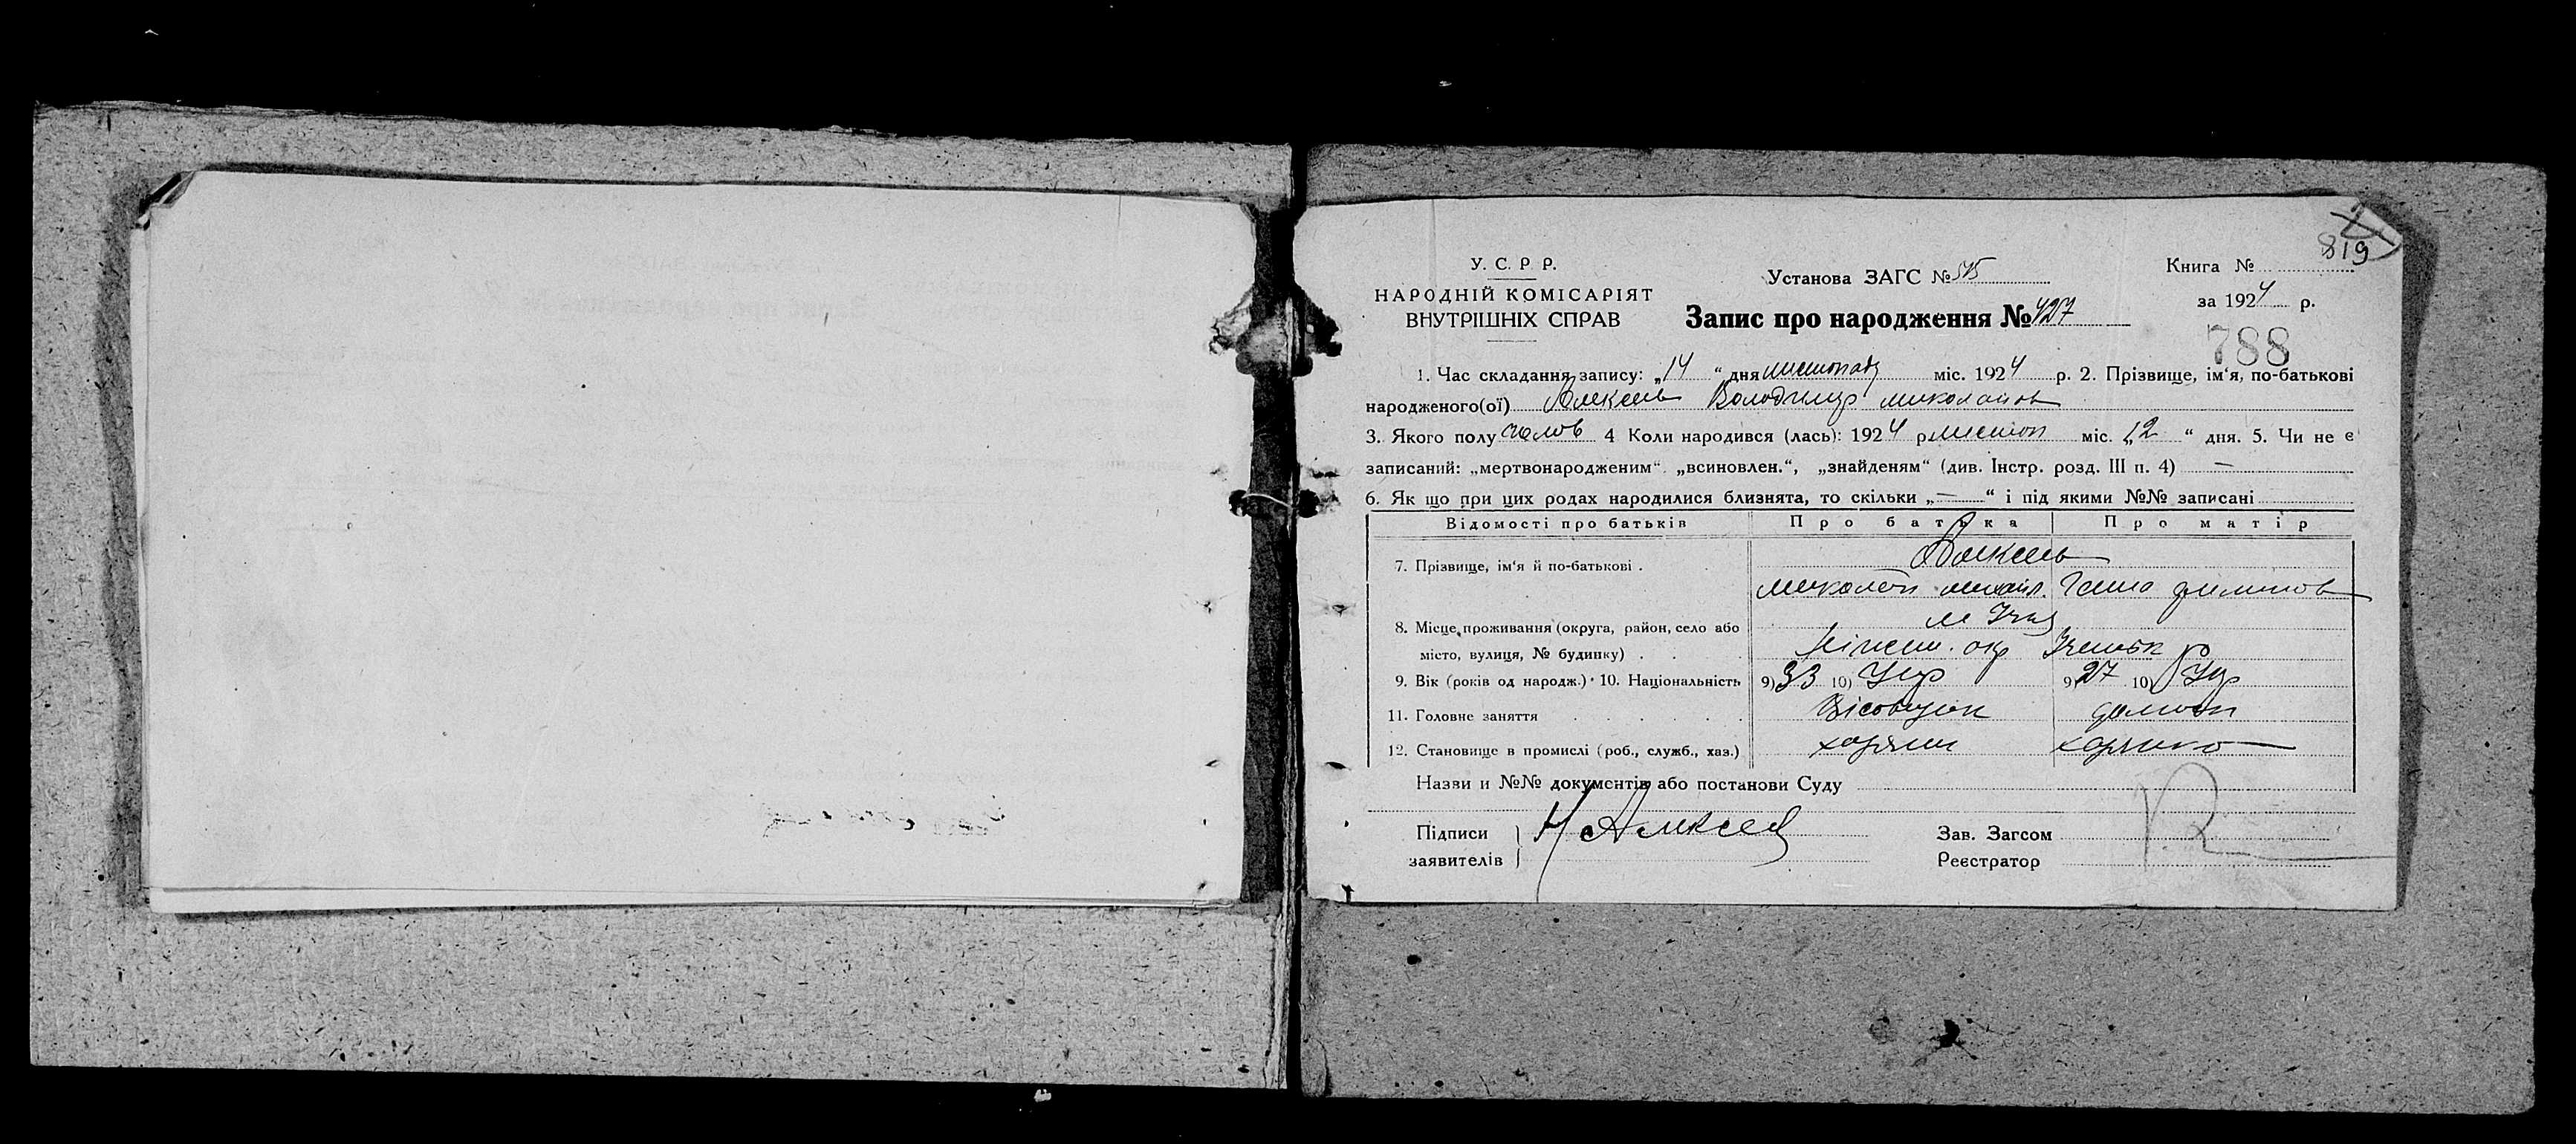 819
У. С. Р Р.
НАРОДНІЙ КОМІСАРІЯТ
ВНУТРІШНІХ СПРАВ
Установа ЗАГС № 515
Книга №
за 1924 р.
Запис про народження № 427
788
1. Час складання запису: „14“ дня листопада міс. 1924 р. 2. Прізвище, ім‘я, по-батькові
народженого(ої) Алексеев Володимир Миколайов
3. Якого полу чолов 4 Коли народився (лась): 1924 р. листоп міс. „2“ дня. 5. Чи не є
записаний: „мертвонародженим“ „всиновлен.“, „знайденям“ (див. Інстр. розд. III п. 4) —
6. Як що при цих родах народилися близнята, то скільки „—“ і під якими №№ записані
Відомості про батьків Про батька Про матір
7. Прізвище, ім‘я й по-батькові . Алексеев
Миколай Михайл. Ганна Филипов
8. Місце проживання (округа, район, село або
місто, вулиця, № будинку) . . . окр р
9. Вік (років од народж.) · 10. Національність 9) 33 10) Укр 9) 27 10) Укр
11. Головне заняття . . . . . . домогосп
12. Становище в промислі (роб., служб., хаз.) хазяин хазяйка
Назви и №№ документів або постанови Суду
Підписи Н Алексеев
заявителів
Зав. Загсом
Реєстратор